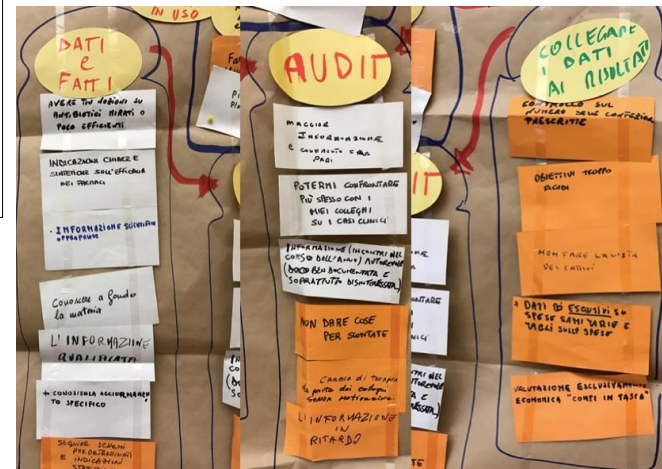 IN USO
DATI
e
FATTI
AVERE PIÙ NOZIONI SU
ANTIBIOTICI MIRATI O
POCO EFFICIENTI
INDICAZIONI CHIARE E
SINTETICHE SULL'EFFICACIA
DEI FARMACI
- INFORMAZIONE SCIENTIFICA
APPROPRIATA
Conoscere a fondo
la materia
L'INFORMAZIONE
QUALIFICATA
+ CONOSCENZA AGGIORNAMEN
TO SPECIFICO
SEGUIRE SCHEMI
PREDETERMINATI
E INDICAZIONI
AUDIT
MAGGIOR
INFORMAZIONE
E CONFRONTO TRA
PARI
POTERMI CONFRONTARE
PIÙ SPESSO CON I
MIEI COLLEGHI
SU I CASI CLINICI
INFORMAZIONE (INCONTRI NEL
CORSO DELL'ANNO) AUTOREVOLE
(DOCO BEN DOCUMENTATA E
SOPRATTUTTO DISINTERESSATA)
NON DARE COSE
PER SCONTATE
CAMBIO DI TERAPIA
da parte dei colleghi
SENZA MOTIVAZIONE
L'INFORMAZIONE
IN
RITARDO
IT
ONTARE
I
GHI
CLINICI
TRI NEL
UTOREVOLE
TE
COLLEGARE
I DATI
AI RISULTATI
CONTROLLO SUL
NUMERO DELLE CONFEZIONI
PRESCRITTE
OBIETTIVI TROPPO
RIGIDI
MONTARE LA LISTA
DEI CATTIVI
+ DATI ED ESCLUSIVI SU
SPESE SANITARIE E
TAGLI SULLE SPESE
VALUTAZIONE ESCLUSIVAMENTE
ECONOMICA "CONTI IN TASCA"